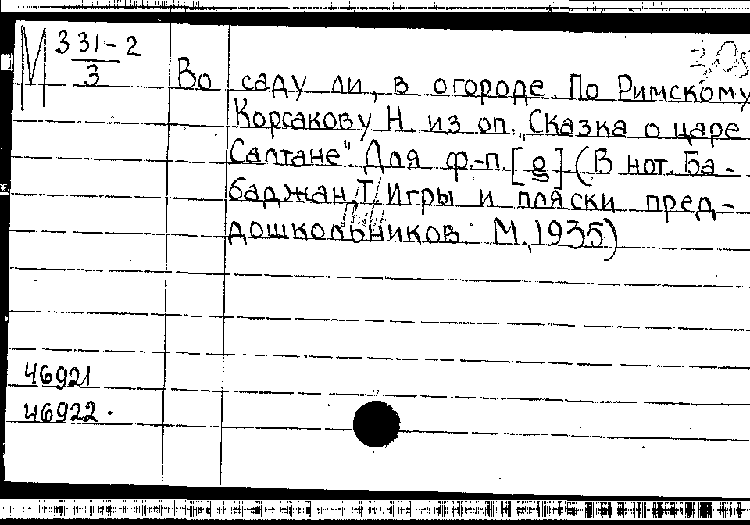 М 331-2
3
Во саду ли, в огороде. По Римскому
Корсакову Н. из оп. „Сказка о царе
Салтане". Для ф.-п. [g] (В нот. Ба-
баджан, Т. Игры и пляски пред-
дошкольников. М., 1935)
46921
46922.